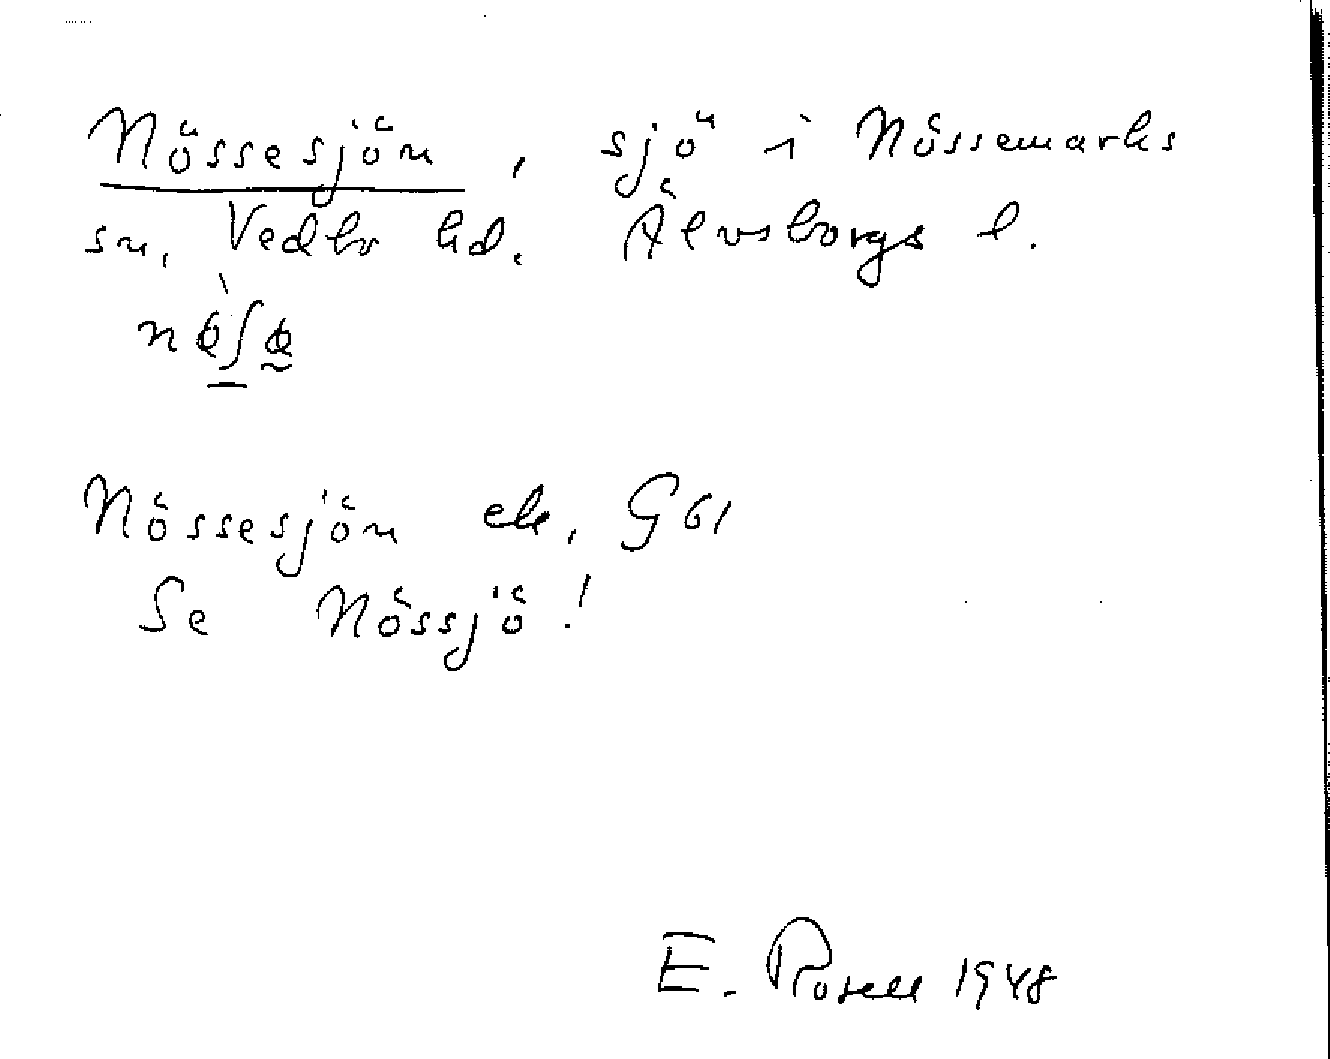 Nössesjön, sjö i Nössemarks
sn, Vedbo hd. Älvsborgs l.
Nössesjön ek, G 61
Se Nössjö!
E. Rosell 1948